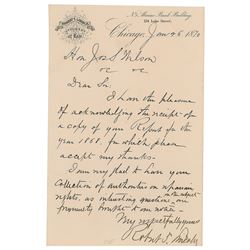 Marine Bank Building
154 Lake Street,
Chicago, Jan 26 1870
Hon. Jos S Wilson
&c &c
Dear Sir
I have the pleasure
of acknowledging the receipt of
a copy of your Report for the
year 1868. for which please
accept my thanks—
I am very glad to have your
Collection of authorities on riparian
rights, as interesting questions on the subject are
frequently brought to our notice
Very respectfully yours
Robert T. Lincoln